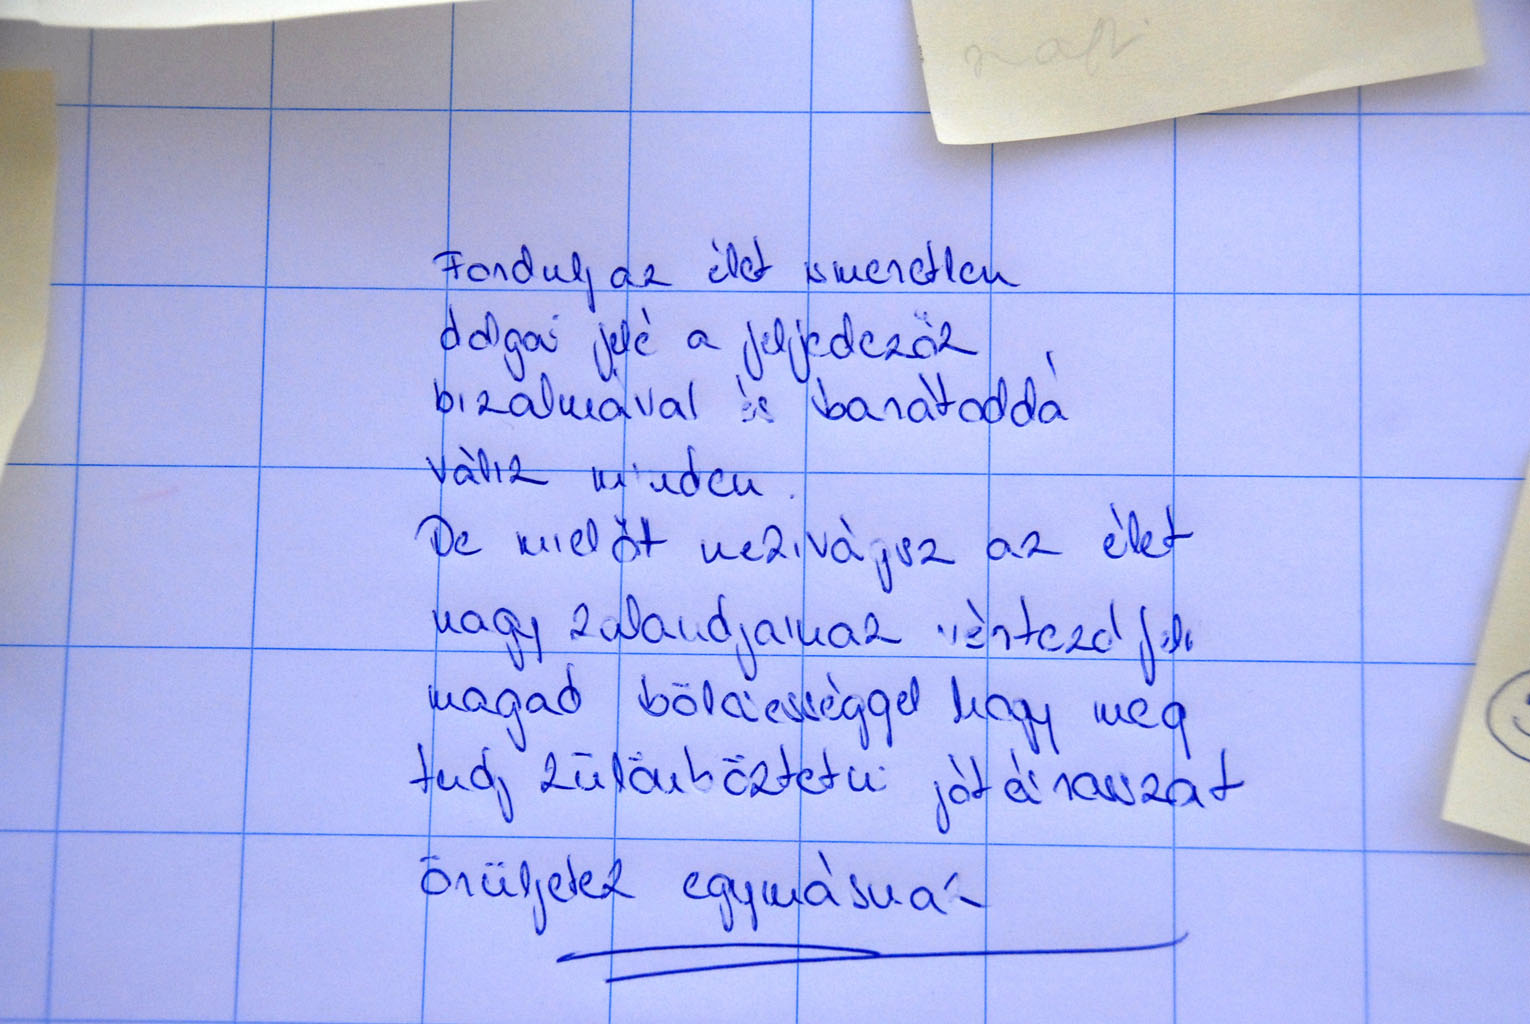 nafi
Fordulj az élet ismeretlen
dolgai felé a felfedezők
bizalmával és barátoddá
válik minden.
De mielőt nekivágsz az élet
nagy kalandjainak vértezd fel
magad bölcsességgel hogy meg
tudj különböztetni jót és rosszat
örüljetek egymásnak